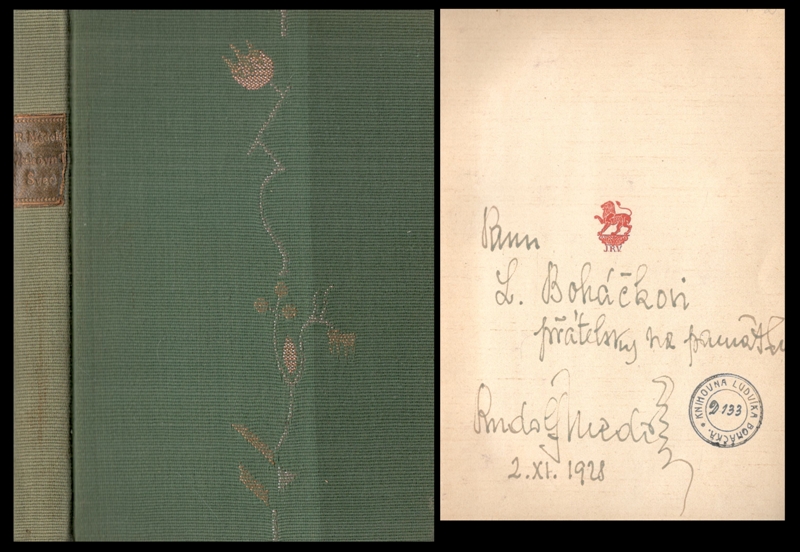 R. Medek
Panu
L. Boháčkovi
přátelsky na památku
Rudolf Medek
2. XI. 1928
J.R.V.
KNIHOVNA LUDVÍKA BOHÁČKA.
D 133